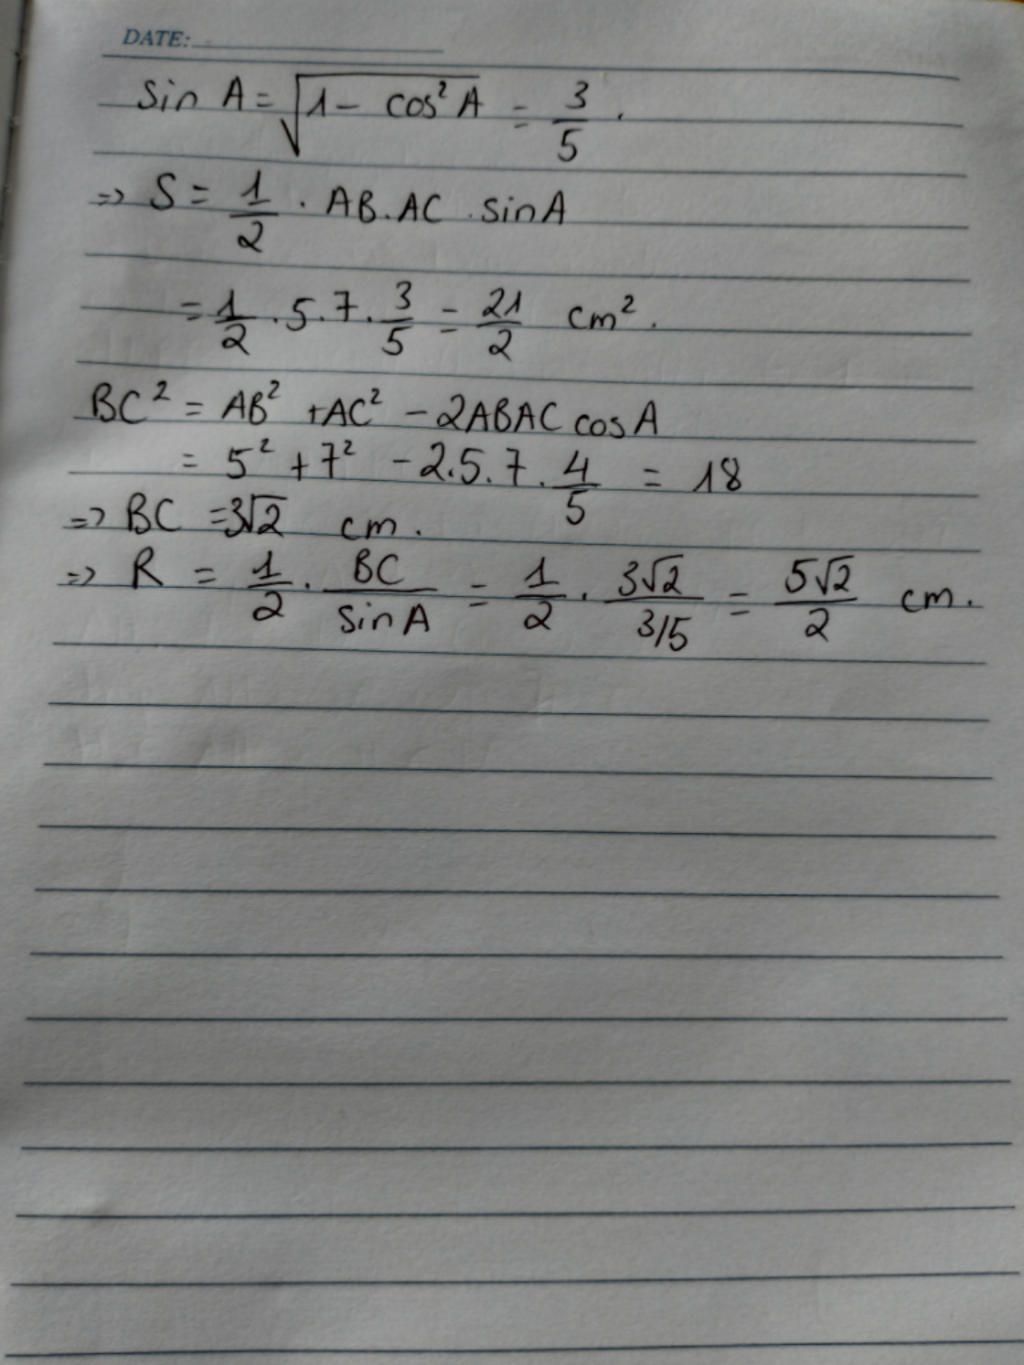 DATE:
sin A = √(1 - cos² A) = 3/5.
=> S = 1/2 . AB.AC . sin A
= 1/2 . 5.7. 3/5 = 21/2 cm².
BC² = AB² + AC² - 2ABAC cos A
= 5² + 7² - 2.5.7. 4/5 = 18
=> BC = 3√2 cm.
=> R = 1/2 . BC/sin A = 1/2 . 3√2/(3/5) = 5√2/2 cm.